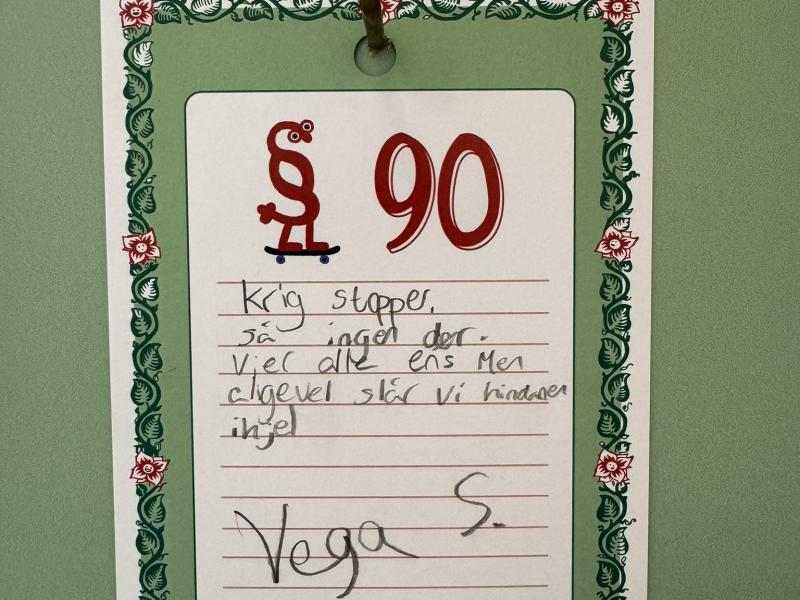 § 90
Krig stopper,
så ingen dør.
Vier alle ens Men
aligevel slår vi hindanen
ihjel
Vega S.